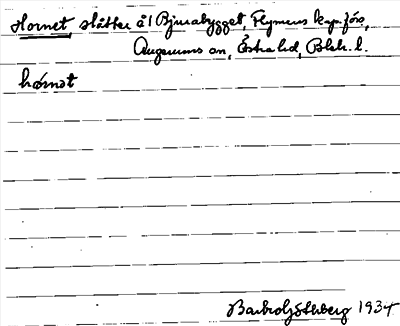 Hornet, slåtter å1 Bjurabygget, Flymens kap.förs.,
Augerums sn, Östra hd, Blek. l.
hơrnət
Barbro Göthberg 1934